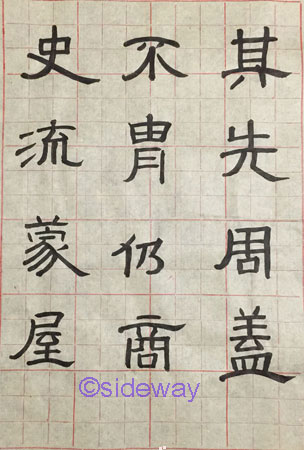 其先周盖
不胄仍商
史流蒙屋
©sideway